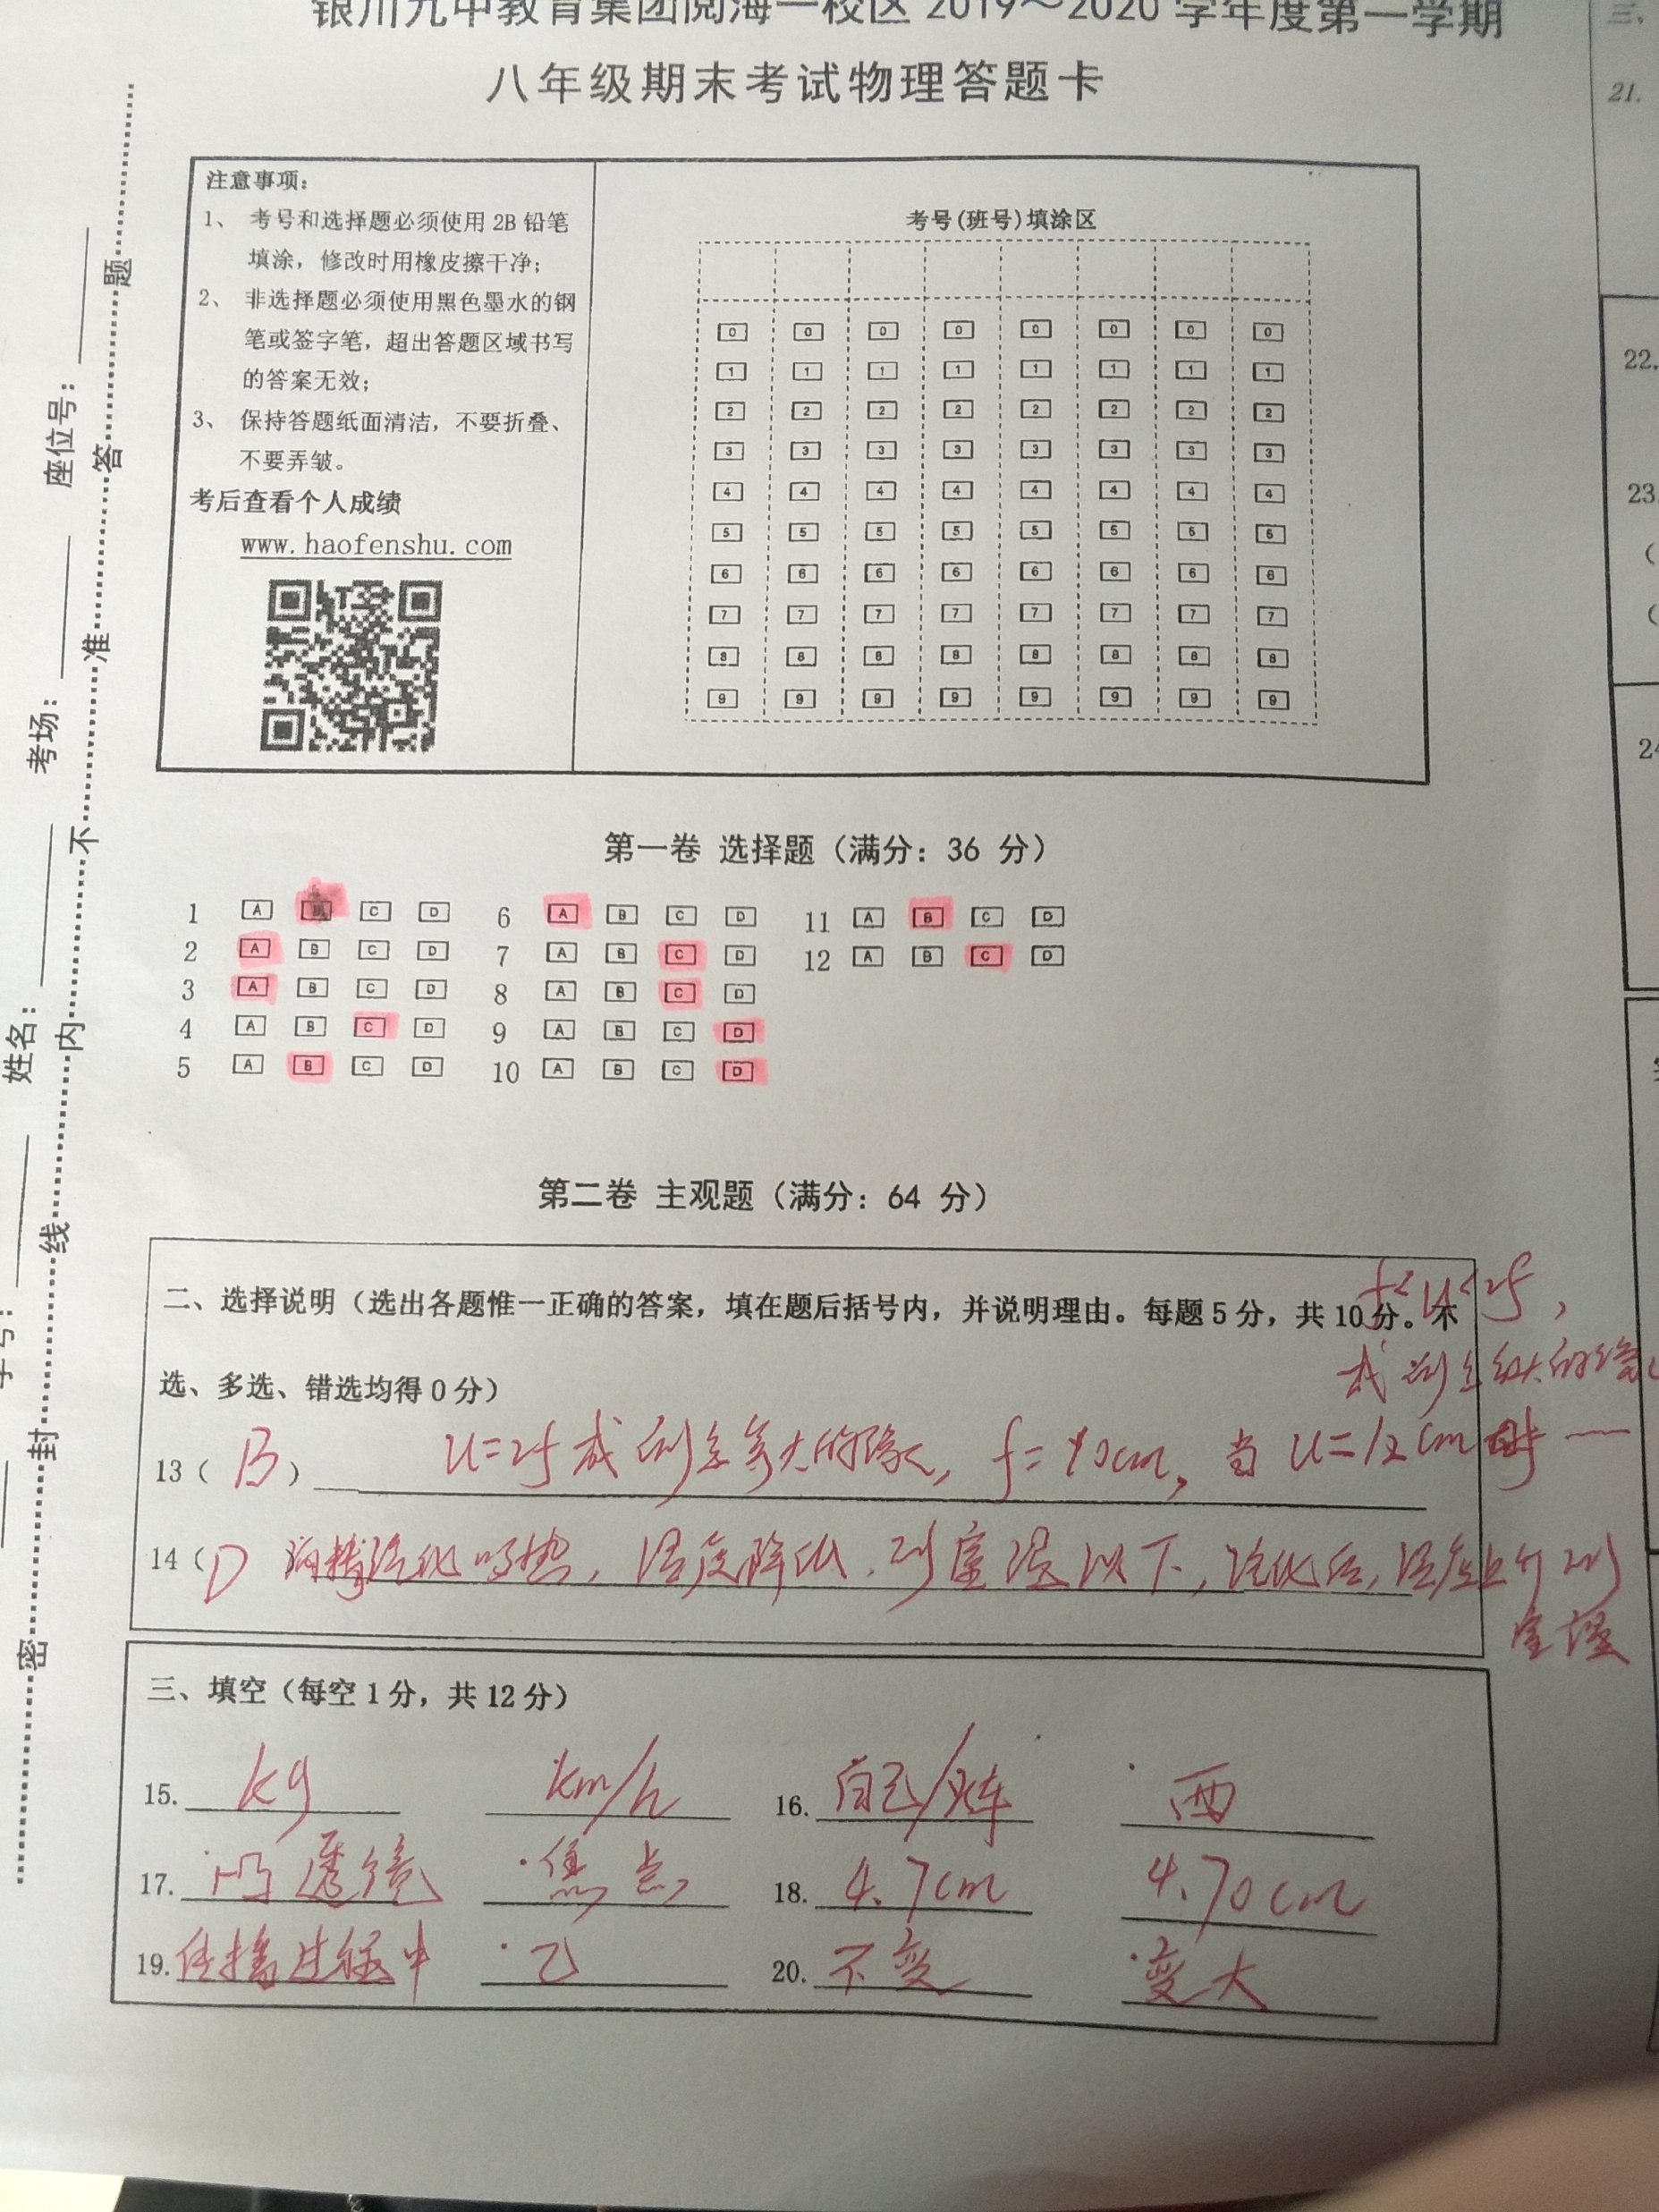 银川九中教育集团阅海一校区 2019～2020 学年度第一学期
八年级期末考试物理答题卡
注意事项：
1、 考号和选择题必须使用 2B 铅笔
填涂，修改时用橡皮擦干净；
2、 非选择题必须使用黑色墨水的钢
笔或签字笔，超出答题区域书写
的答案无效；
3、 保持答题纸面清洁，不要折叠、
不要弄皱。
考后查看个人成绩
www.haofenshu.com
考号(班号)填涂区
0 0 0 0 0 0 0 0
1 1 1 1 1 1 1 1
2 2 2 2 2 2 2 2
3 3 3 3 3 3 3 3
4 4 4 4 4 4 4 4
5 5 5 5 5 5 5 5
6 6 6 6 6 6 6 6
7 7 7 7 7 7 7 7
8 8 8 8 8 8 8 8
9 9 9 9 9 9 9 9
座位号：
考场：
姓名：
学号：
密 封 线 内 不 准 答 题
第一卷 选择题（满分：36 分）
1 A B C D 6 A B C D 11 A B C D
2 A B C D 7 A B C D 12 A B C D
3 A B C D 8 A B C D
4 A B C D 9 A B C D
5 A B C D 10 A B C D
第二卷 主观题（满分：64 分）
二、选择说明（选出各题惟一正确的答案，填在题后括号内，并说明理由。每题 5 分，共 10 分。不
选、多选、错选均得 0 分）
f<u<2f，
成倒立放大的像
13（ B ） u=2f 成倒立等大的像，f=10cm，当 u=12cm时
14（D 酒精汽化吸热，温度降低，到室温以下，汽化后，温度上升到
室温
三、填空（每空 1 分，共 12 分）
15. kg km/h 16. 自己/火车 西
17. 凹透镜 焦点 18. 4.7cm 4.70cm
19. 传播过程中 乙 20. 不变 变大
三、
21.
22.
23.
24